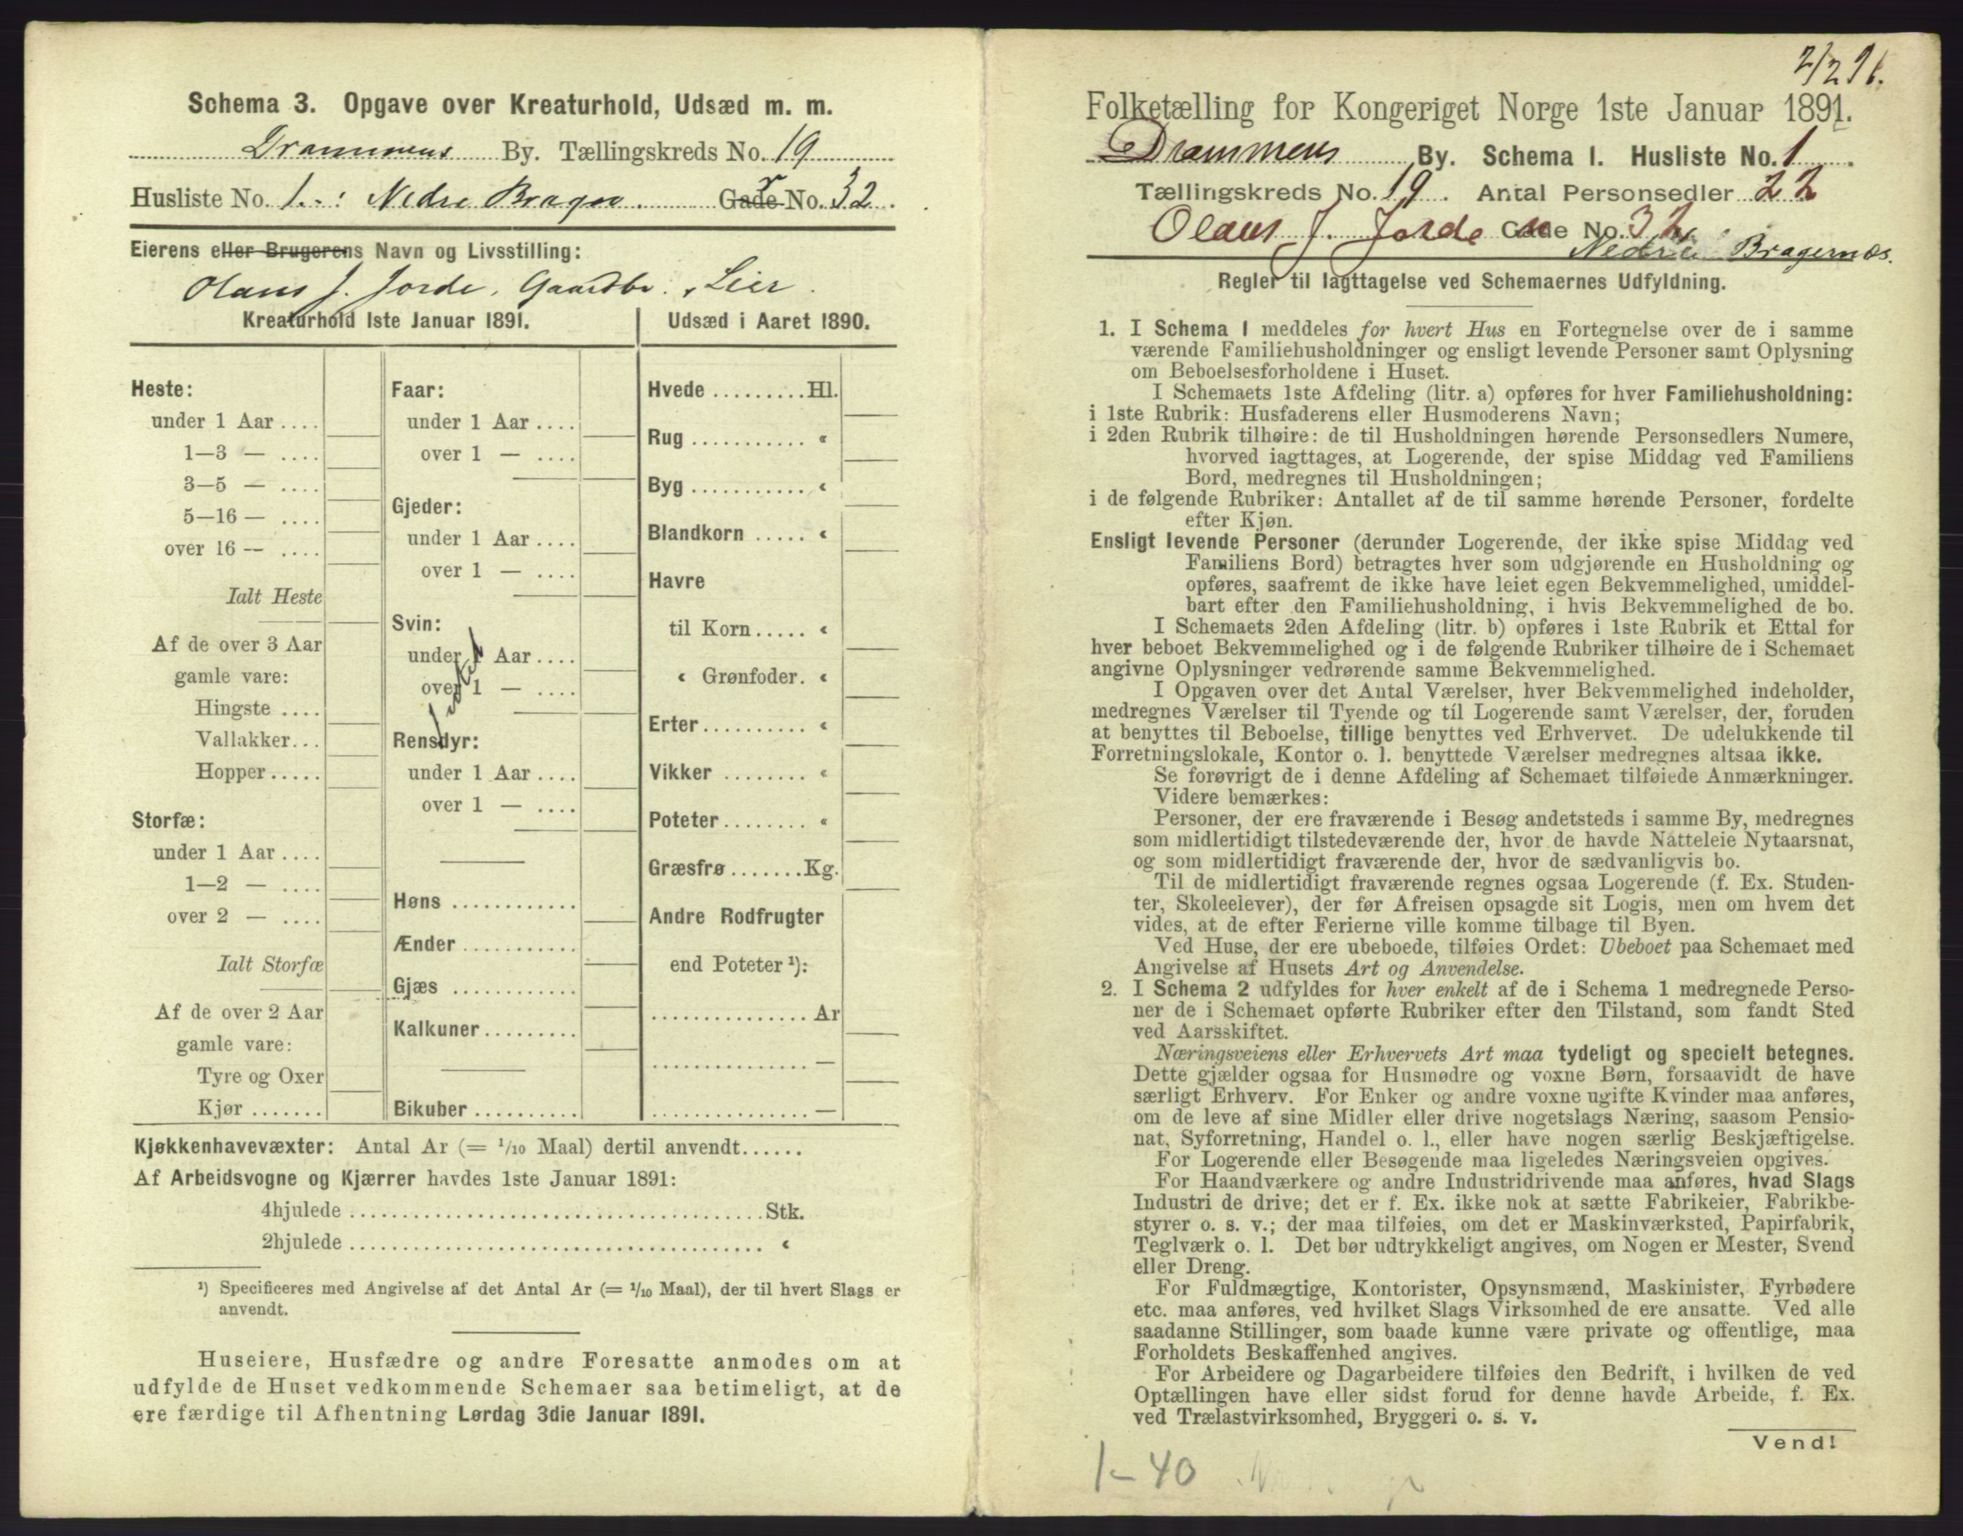 Schema 3. Opgave over Kreaturhold, Udsæd m. m.
Drammens By. Tællingskreds No. 19
Husliste No. 1. : Nedre Bragn. Gade No. 32.
Eierens eller Brugerens Navn og Livsstilling:
Olaus J. Jorde, Gaardbr., Lier.
Kreaturhold 1ste Januar 1891.
Heste:
under 1 Aar ....
1—3 — ....
3—5 — ....
5—16 — ....
over 16 — ....
Ialt Heste
Af de over 3 Aar
gamle vare:
Hingste ....
Vallakker...
Hopper.....
Storfæ:
under 1 Aar ....
1—2 — ....
over 2 — ....
Ialt Storfæ
Af de over 2 Aar
gamle vare:
Tyre og Oxer
Kjør .......
Faar:
under 1 Aar ....
over 1 — ....
Gjeder:
under 1 Aar ....
over 1 — ....
Svin:
under 1 Aar ....
over 1 — ....
Rensdyr:
under 1 Aar ....
over 1 — ....
Høns ............
Ænder ...........
Gjæs ............
Kalkuner.........
Bikuber ..........
Udsæd i Aaret 1890.
Hvede .........Hl.
Rug ........... «
Byg ........... «
Blandkorn ..... «
Havre
til Korn ..... «
« Grønfoder. «
Erter.......... «
Vikker ........ «
Poteter........ «
Græsfrø .......Kg.
Andre Rodfrugter
end Poteter ¹):
............... Ar
............... —
............... —
Kjøkkenhavevæxter: Antal Ar (= 1/10 Maal) dertil anvendt......
Af Arbeidsvogne og Kjærrer havdes 1ste Januar 1891:
4hjulede ........................................Stk.
2hjulede ........................................ «
¹) Specificeres med Angivelse af det Antal Ar (= 1/10 Maal), der til hvert Slags er
anvendt.
Huseiere, Husfædre og andre Foresatte anmodes om at
udfylde de Huset vedkommende Schemaer saa betimeligt, at de
ere færdige til Afhentning Lørdag 3die Januar 1891.
Folketælling for Kongeriget Norge 1ste Januar 1891.
Drammens By. Schema I. Husliste No. 1.
Tællingskreds No. 19. Antal Personsedler 22
Olaus J. Jorde Gade No. 32
Nedre Bragernæs.
Regler til Iagttagelse ved Schemaernes Udfyldning.
1. I Schema 1 meddeles for hvert Hus en Fortegnelse over de i samme
værende Familiehusholdninger og ensligt levende Personer samt Oplysning
om Beboelsesforholdene i Huset.
I Schemaets 1ste Afdeling (litr. a) opføres for hver Familiehusholdning:
i 1ste Rubrik: Husfaderens eller Husmoderens Navn;
i 2den Rubrik tilhøire: de til Husholdningen hørende Personsedlers Numere,
hvorved iagttages, at Logerende, der spise Middag ved Familiens
Bord, medregnes til Husholdningen;
i de følgende Rubriker: Antallet af de til samme hørende Personer, fordelte
efter Kjøn.
Ensligt levende Personer (derunder Logerende, der ikke spise Middag ved
Familiens Bord) betragtes hver som udgjørende en Husholdning og
opføres, saafremt de ikke have leiet egen Bekvemmelighed, umiddel-
bart efter den Familiehusholdning, i hvis Bekvemmelighed de bo.
I Schemaets 2den Afdeling (litr. b) opføres i 1ste Rubrik et Ettal for
hver beboet Bekvemmelighed og i de følgende Rubriker tilhøire de i Schemaet
angivne Oplysninger vedrørende samme Bekvemmelighed.
I Opgaven over det Antal Værelser, hver Bekvemmelighed indeholder,
medregnes Værelser til Tyende og til Logerende samt Værelser, der, foruden
at benyttes til Beboelse, tillige benyttes ved Erhvervet. De udelukkende til
Forretningslokale, Kontor o. l. benyttede Værelser medregnes altsaa ikke.
Se forøvrigt de i denne Afdeling af Schemaet tilføiede Anmærkninger.
Videre bemærkes:
Personer, der ere fraværende i Besøg andetsteds i samme By, medregnes
som midlertidigt tilstedeværende der, hvor de havde Natteleie Nytaarsnat,
og som midlertidigt fraværende der, hvor de sædvanligvis bo.
Til de midlertidigt fraværende regnes ogsaa Logerende (f. Ex. Studen-
ter, Skoleelever), der før Afreisen opsagde sit Logis, men om hvem det
vides, at de efter Ferierne ville komme tilbage til Byen.
Ved Huse, der ere ubeboede, tilføies Ordet: Ubeboet paa Schemaet med
Angivelse af Husets Art og Anvendelse.
2. I Schema 2 udfyldes for hver enkelt af de i Schema 1 medregnede Perso-
ner de i Schemaet opførte Rubriker efter den Tilstand, som fandt Sted
ved Aarsskiftet.
Næringsveiens eller Erhvervets Art maa tydeligt og specielt betegnes.
Dette gjælder ogsaa for Husmødre og voxne Børn, forsaavidt de have
særligt Erhverv. For Enker og andre voxne ugifte Kvinder maa anføres,
om de leve af sine Midler eller drive nogetslags Næring, saasom Pensio-
nat, Syforretning, Handel o. l., eller have nogen særlig Beskjæftigelse.
For Logerende eller Besøgende maa ligeledes Næringsveien opgives.
For Haandværkere og andre Industridrivende maa anføres, hvad Slags
Industri de drive; det er f. Ex. ikke nok at sætte Fabrikeier, Fabrikbe-
styrer o. s. v.; der maa tilføies, om det er Maskinværksted, Papirfabrik,
Teglværk o. l. Det bør udtrykkeligt angives, om Nogen er Mester, Svend
eller Dreng.
For Fuldmægtige, Kontorister, Opsynsmænd, Maskinister, Fyrbødere
etc. maa anføres, ved hvilket Slags Virksomhed de ere ansatte. Ved alle
saadanne Stillinger, som baade kunne være private og offentlige, maa
Forholdets Beskaffenhed angives.
For Arbeidere og Dagarbeidere tilføies den Bedrift, i hvilken de ved
Optællingen have eller sidst forud for denne havde Arbeide, f. Ex.
ved Trælastvirksomhed, Bryggeri o. s. v.
Vend!
1—40